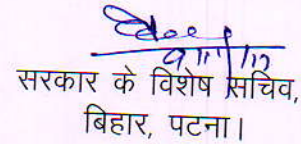 सरकार के विशेष सचिव,
बिहार, पटना।